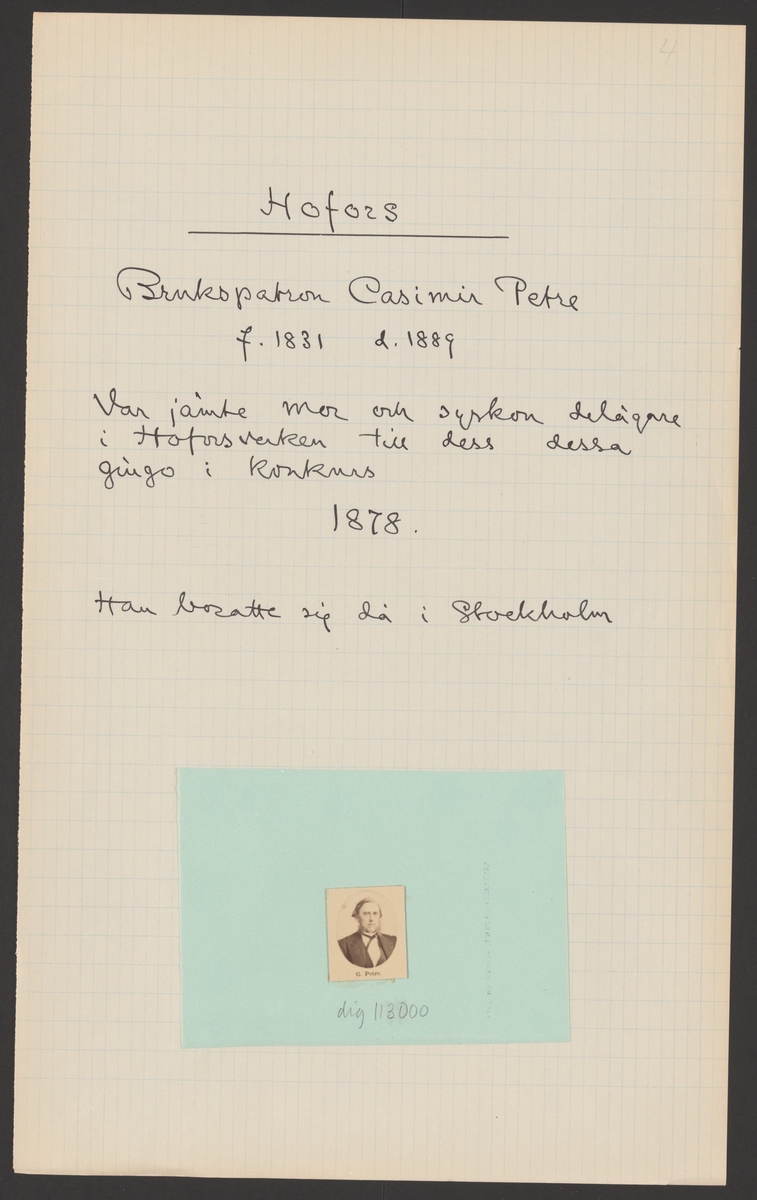 4
Hofors
Brukspatron Casimir Petre
f. 1831 d. 1889
Var jämte mor och syskon delägare
i Hoforsverken till dess dessa
gingo i konkurs
1878.
Han bosatte sig då i Stockholm
G. Petre.
dig 113000